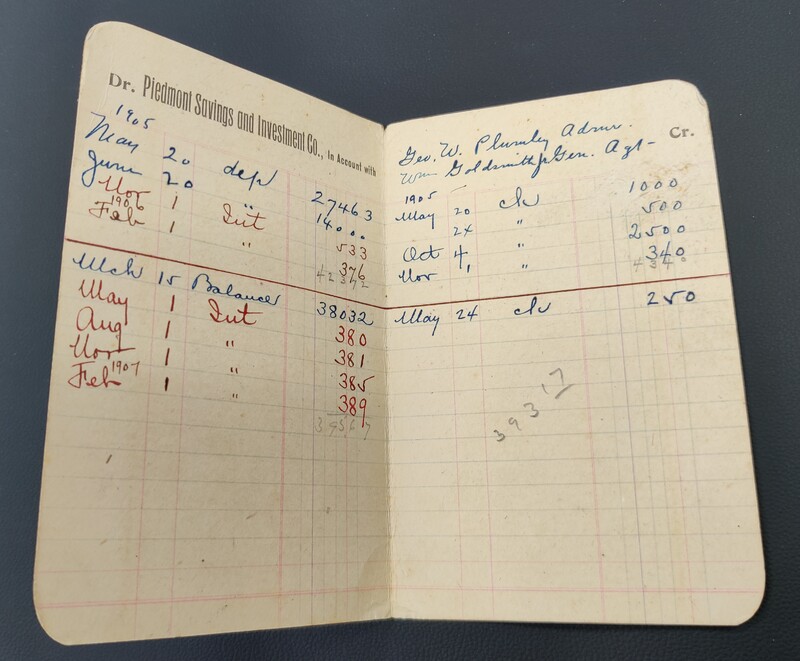 Dr. Piedmont Savings and Investment Co., in Account with
1905
May 20 dep 27463
June 20 " 14000
Nov 1 Int 533
1906
Feb 1 " 376
42372
Mch 15 Balance 38032
May 1 Int 380
Aug 1 " 381
Nov 1 " 385
Feb 1907 1 " 389
39567
Geo. W. Plumly Admr. Cr.
Wm Goldsmith Jr Gen. Agt-
1905
May 20 ck 1000
24 " 500
Oct 4 " 2500
Nov 1 " 340
4340
May 24 ck 250
39317